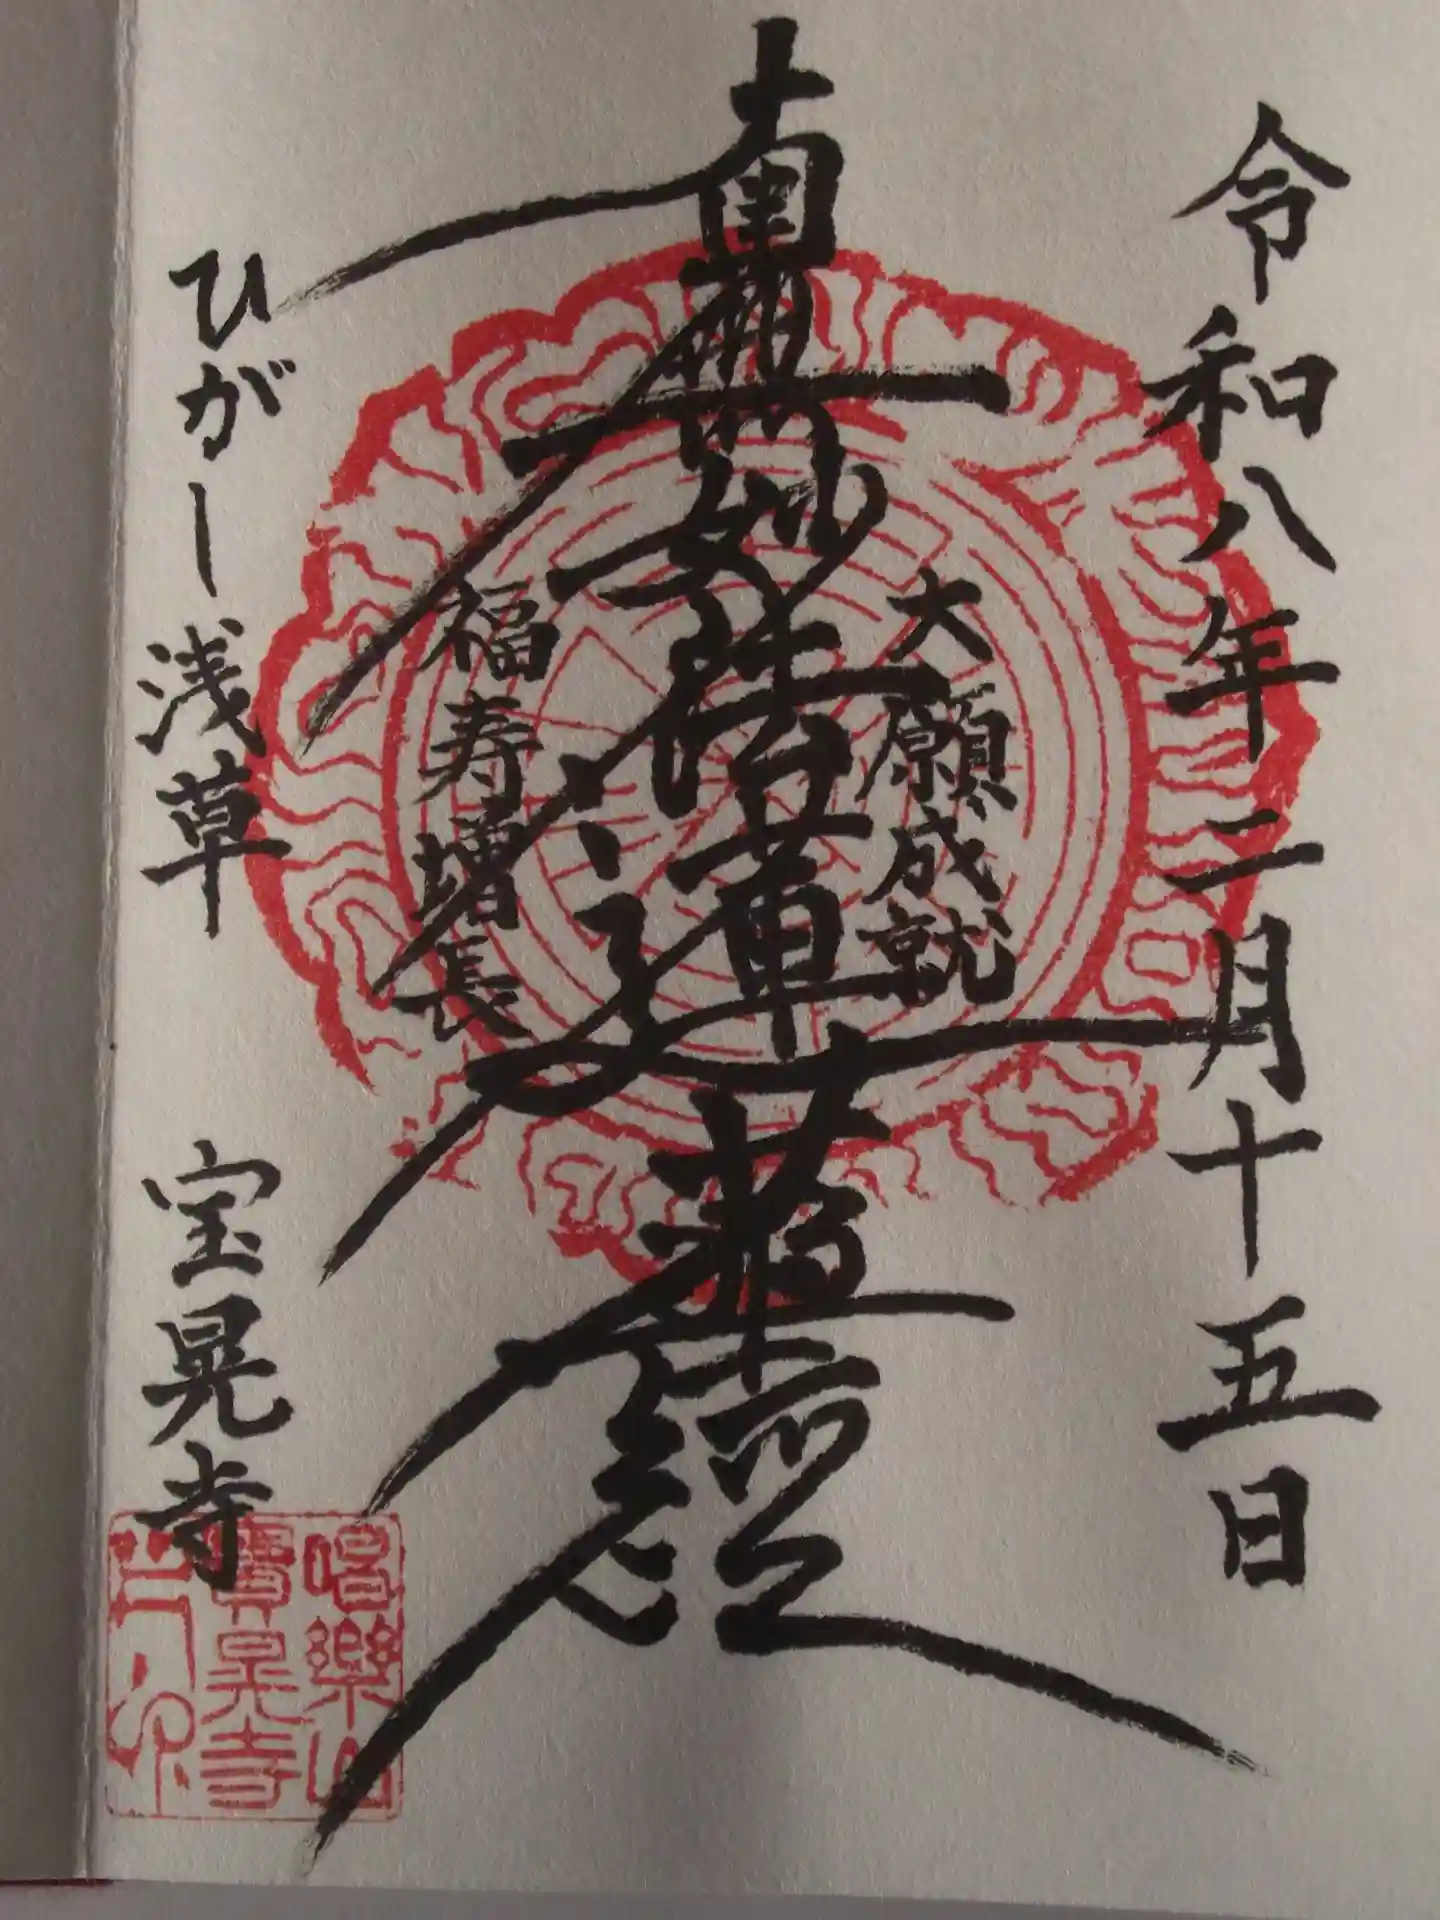 令和八年二月十五日
大願成就
南無妙法蓮華経
福寿増長
ひがし浅草 宝晃寺
唱樂山
寶晃寺